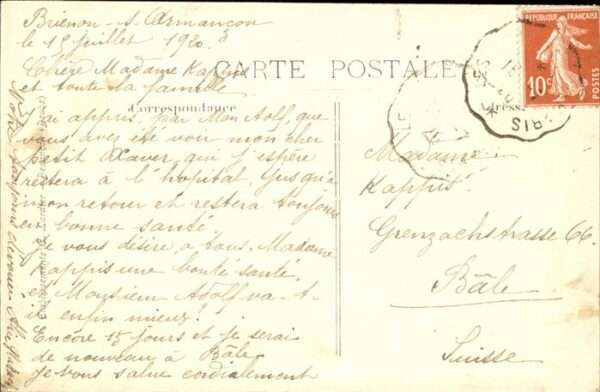 Brienon-s-Armançon
le 15 juillet 1920.
Chère Madame Kappis
et toute la famille
CARTE POSTALE
Correspondance
Adresse
REPUBLIQUE FRANÇAISE
10c
POSTES
J'ai appris, par Mon Adolf, que
vous avez été voir mon cher
petit Xaver, qui j'espère
restera à l'hôpital jusqu'à
mon retour et restera toujours
en bonne santé.
Je vous désire, a tous, Madame
Kappis une bonte santé,
et Monsieur Adolf va-t-
il enfin mieux?
Encore 15 jours et je serai
de nouveau à Bâle
Je vous salue cordialement
Votre toujours dévouée
Madame
Kappis
Grenzachstrasse 66.
Bâle
Suisse